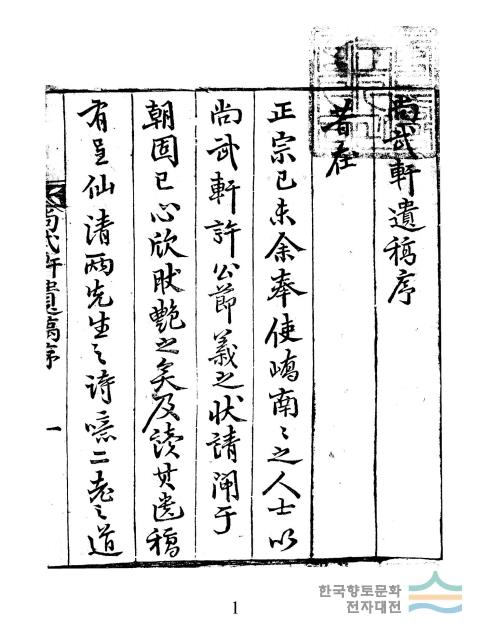 尚武軒遺稿序
昔在
正宗已未余奉使嶠南〻之人士以
尚武軒許公節義之狀請聞于
朝固已心欣肰艶之矣及讀其遺稿
有呈仙清兩先生〻詩噫二老〻道
尚武軒遺稿序 一
한국향토문화
전자대전
1